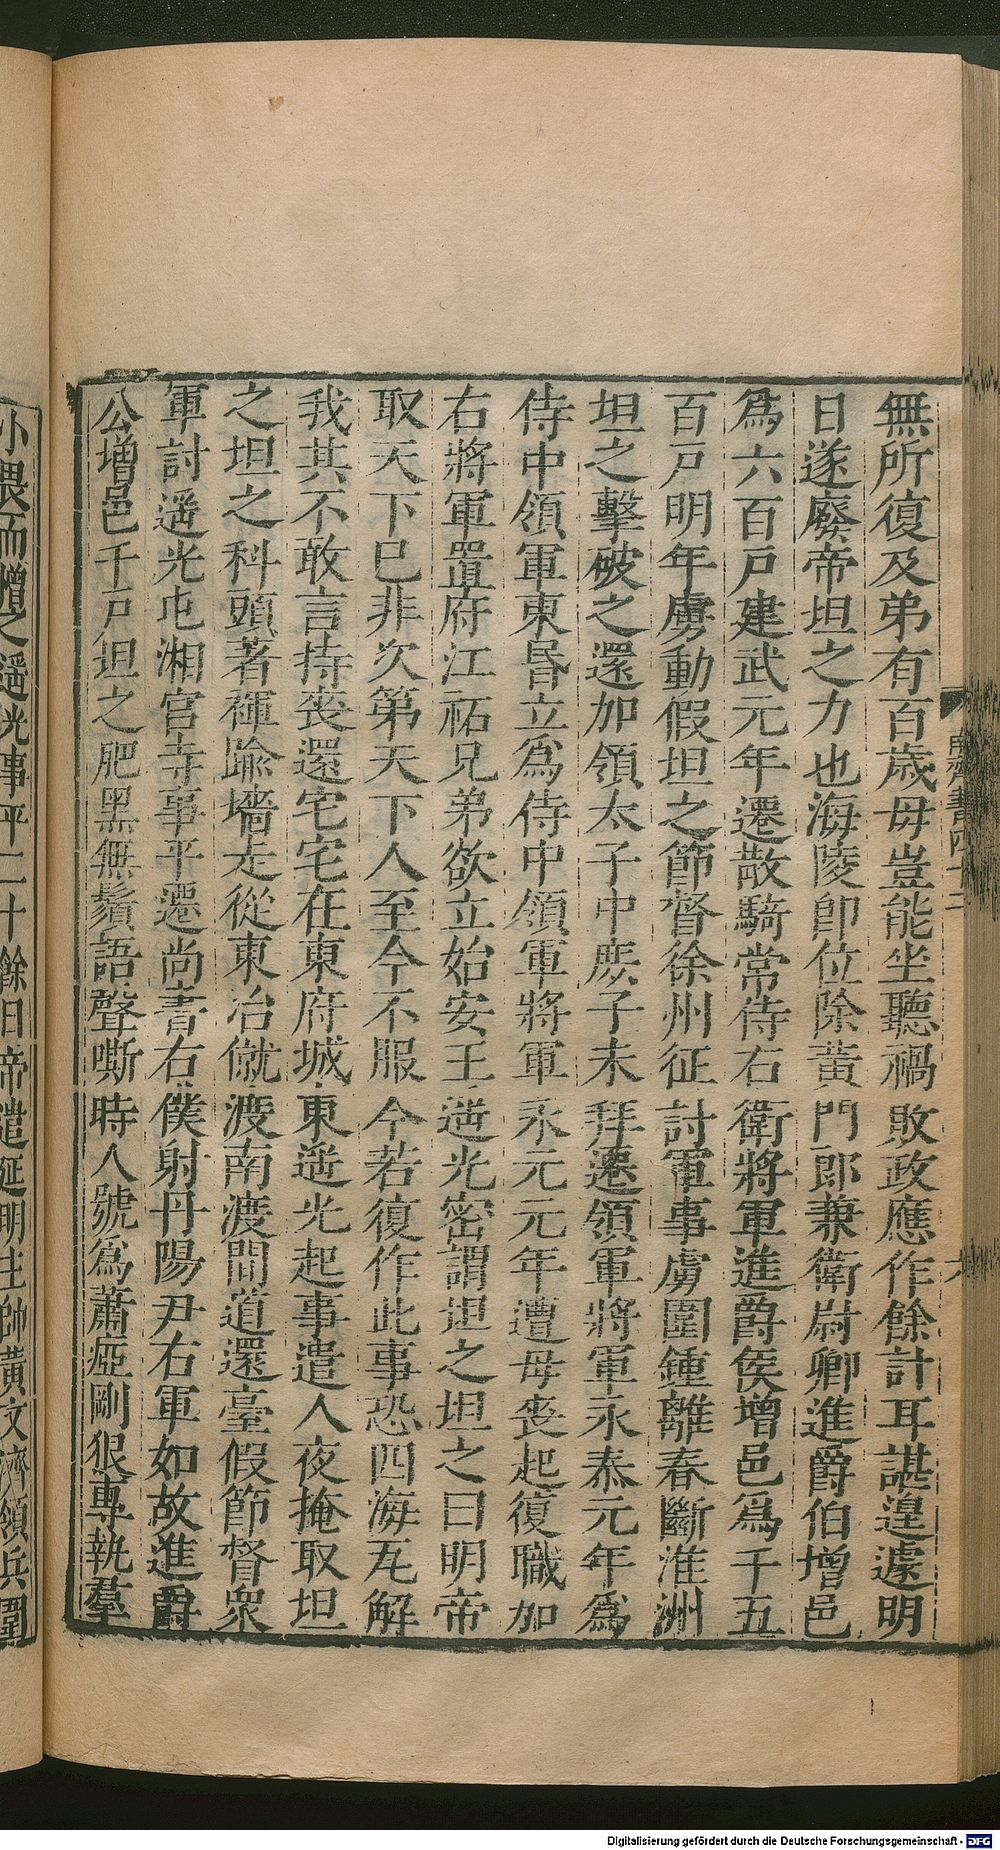 無所復及弟有百歲母豈能坐聽禍敗政應作餘計耳諶遑遽明
日遂廢帝坦之力也海陵卽位除黃門郎兼衞尉卿進爵伯增邑
爲六百戶建武元年遷散騎常侍右衞將軍進爵侯增邑爲千五
百戶明年虜動假坦之節督徐州征討軍事虜圍鍾離春斷淮洲
坦之擊破之還加領太子中庶子未拜遷領軍將軍永泰元年爲
侍中領軍東昏立爲侍中領軍將軍永元元年遭母喪起復職加
右將軍置府江祏兄弟欲立始安王遥光密謂坦之坦之曰明帝
取天下已非次第天下人至今不服今若復作此事恐四海瓦解
我其不敢言持喪還宅宅在東府城東遥光起事遣人夜掩取坦
之坦之科頭著褌踰墻走從東冶僦渡南渡間道還臺假節督衆
軍討遥光屯湘宮寺事平遷尚書右僕射丹陽尹右軍如故進爵
公增邑千戶坦之肥黑無鬚語聲嘶時人號爲蕭瘂剛狠專執羣
小畏而憎之遥光事平二十餘日帝遣延明主帥黃文濟領兵圍
Digitalisierung gefördert durch die Deutsche Forschungsgemeinschaft - DFG